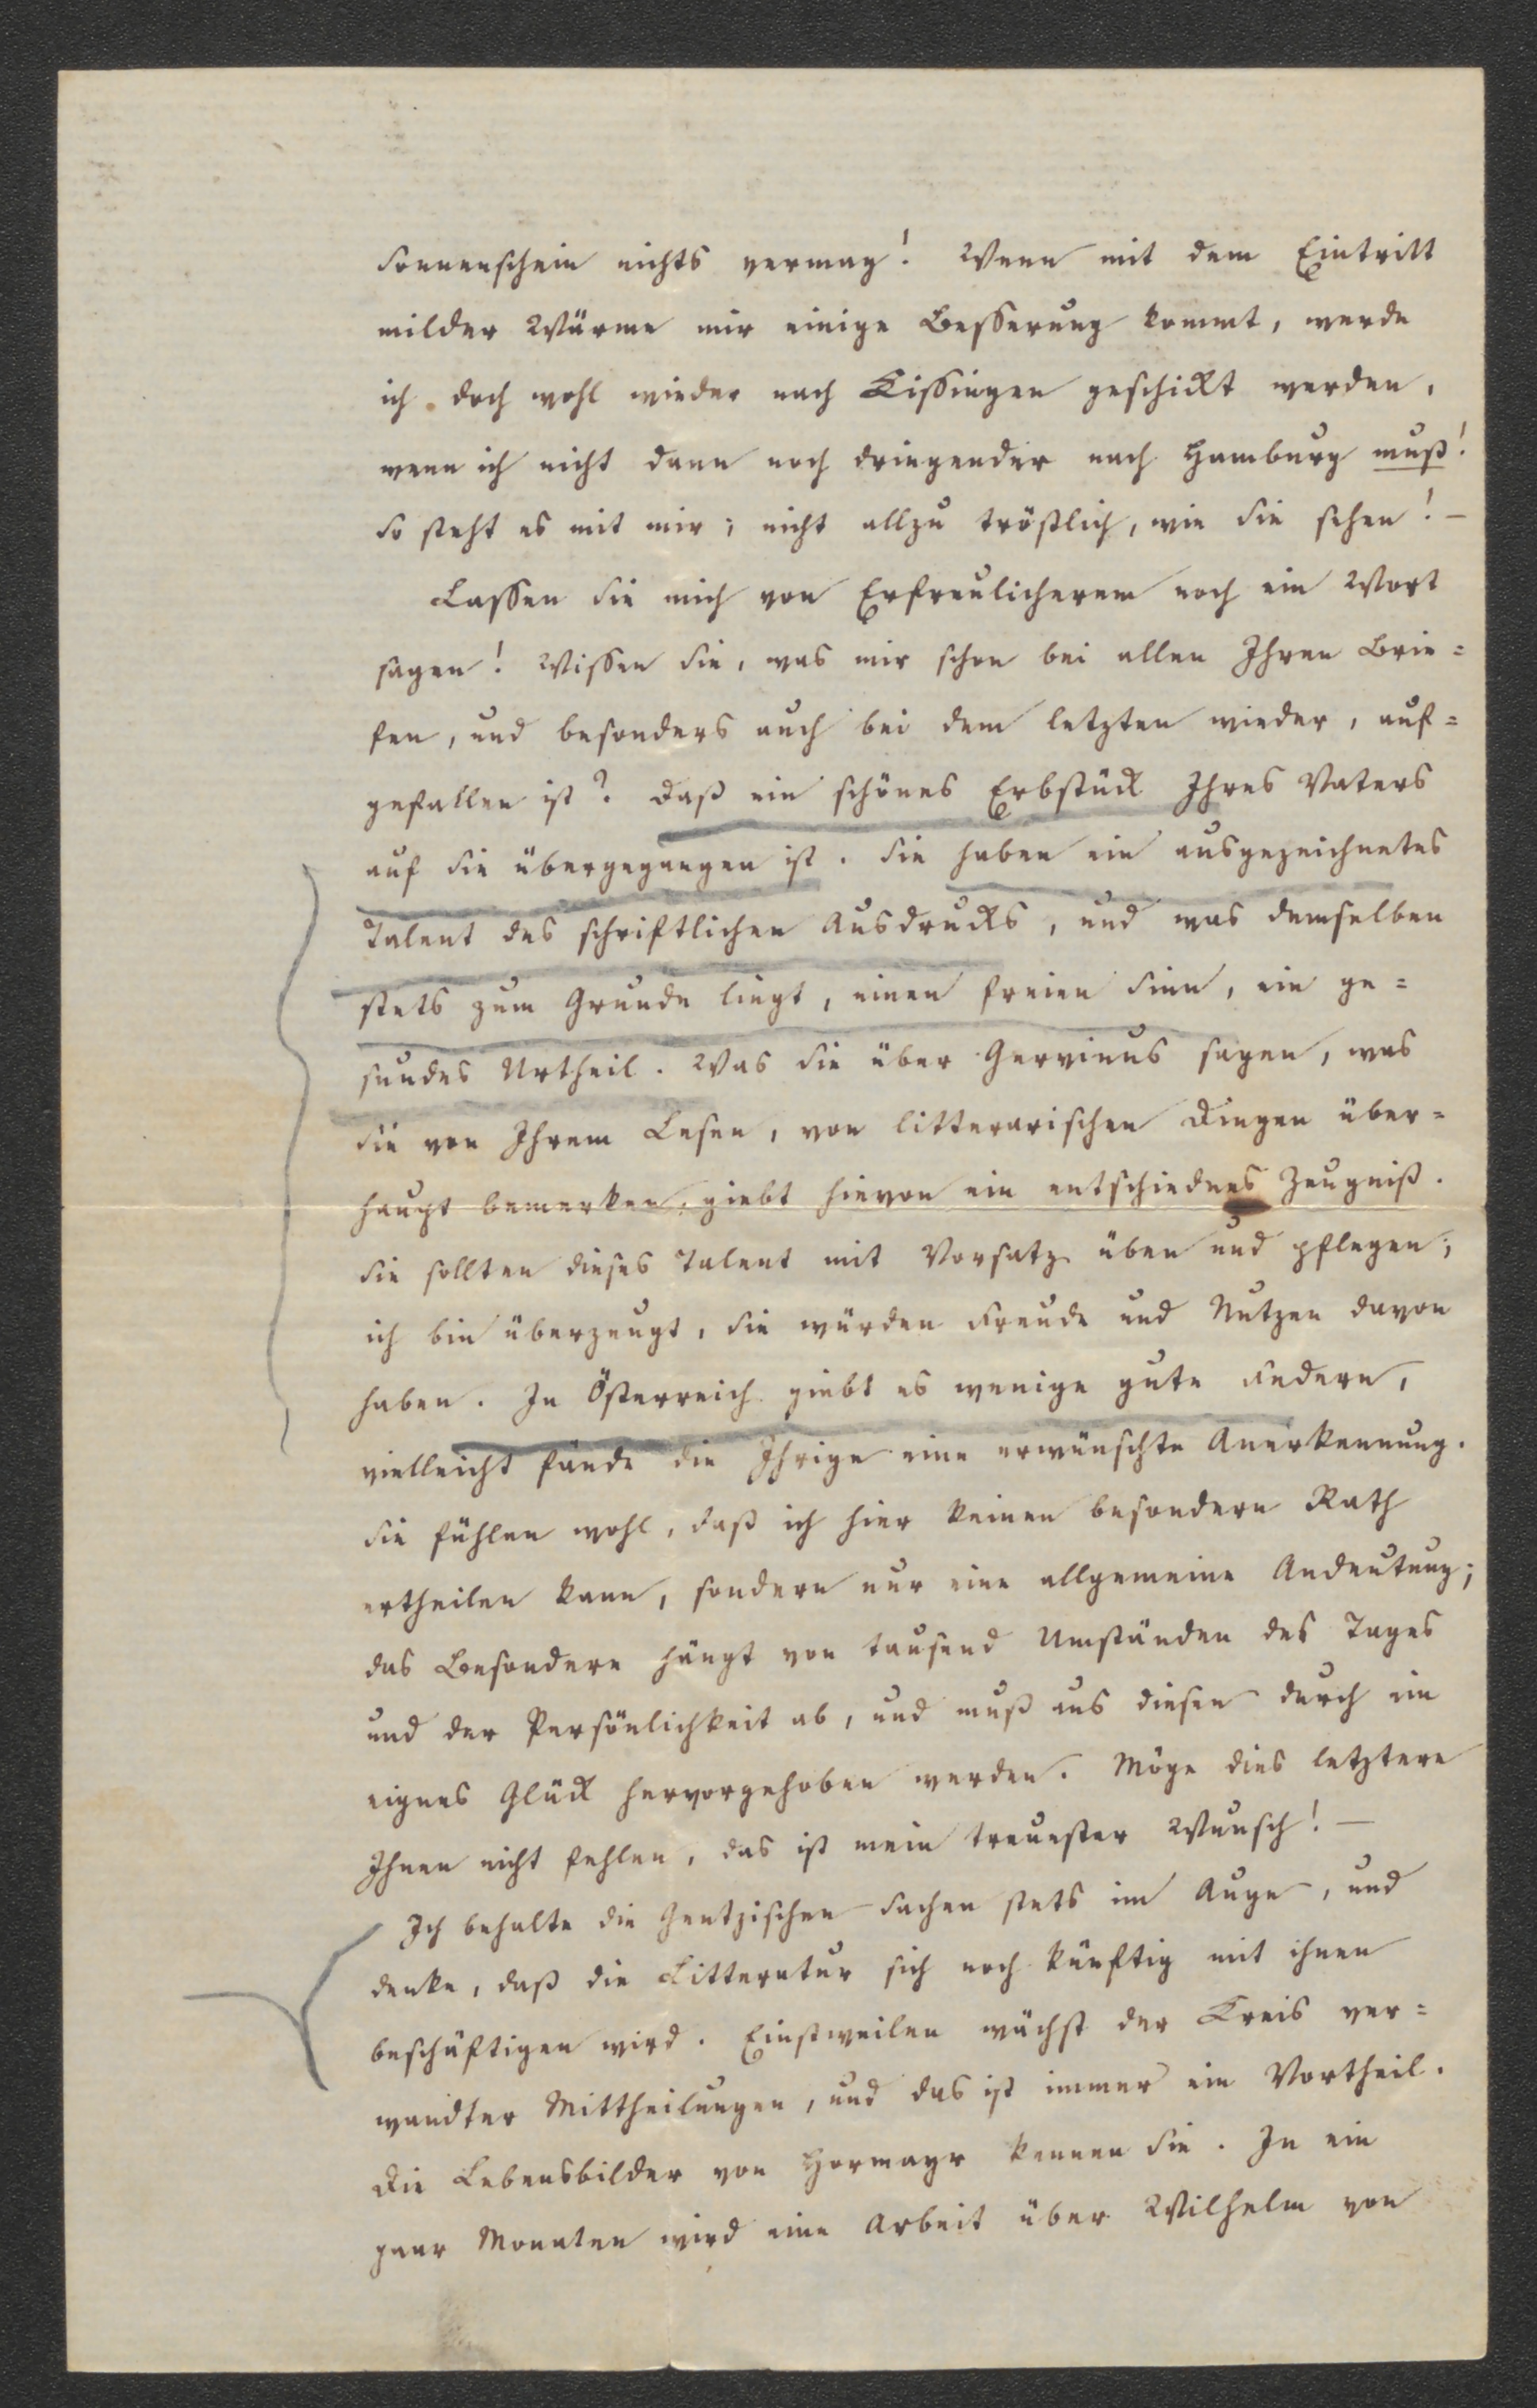 Sonnenschein nichts vermag! Wenn mit dem Eintritt
milder Wärme mir einige Besserung kommt, werde
ich doch wohl wieder nach Kissingen geschickt werden,
wenn ich nicht dann noch dringender nach Hamburg muß!
So steht es mit mir; nicht allzu tröstlich, wie Sie sehen! –
Lassen Sie mich von Erfreulicherem noch ein Wort
sagen! Wissen Sie, was mir schon bei allen Ihren Brie=
fen, und besonders auch bei dem letzten wieder, auf=
gefallen ist? Daß ein schönes Erbstück Ihres Vaters
auf Sie übergegangen ist. Sie haben ein ausgezeichnetes
Talent des schriftlichen Ausdrucks, und was demselben
stets zum Grunde liegt, einen freien Sinn, ein ge=
sundes Urtheil. Was Sie über Gervinus sagen, was
Sie von Ihrem Lesen, von litterarischen Dingen über=
haupt bemerken, giebt hievon ein entschiednes Zeugniß.
Sie sollten dieses Talent mit Vorsatz üben und pflegen;
ich bin überzeugt, Sie würden Freude und Nutzen davon
haben. In Österreich giebt es wenige gute Federn,
vielleicht fände die Ihrige eine erwünschte Anerkennung.
Sie fühlen wohl, daß ich hier keinen besondern Rath
ertheilen kann, sondern nur eine allgemeine Andeutung;
das Besondere hängt von tausend Umständen des Tages
und der Persönlichkeit ab, und muß aus diesen durch ein
eignes Glück hervorgehoben werden. Möge dies letztere
Ihnen nicht fehlen, das ist mein treuester Wunsch! –
Ich behalte die Gentzischen Sachen stets im Auge, und
denke, daß die Litteratur sich noch künftig mit ihnen
beschäftigen wird. Einstweilen wächst der Kreis ver=
wandter Mittheilungen, und das ist immer ein Vortheil.
Die Lebensbilder von Hormayr kennen Sie. In ein
paar Monaten wird eine Arbeit über Wilhelm von